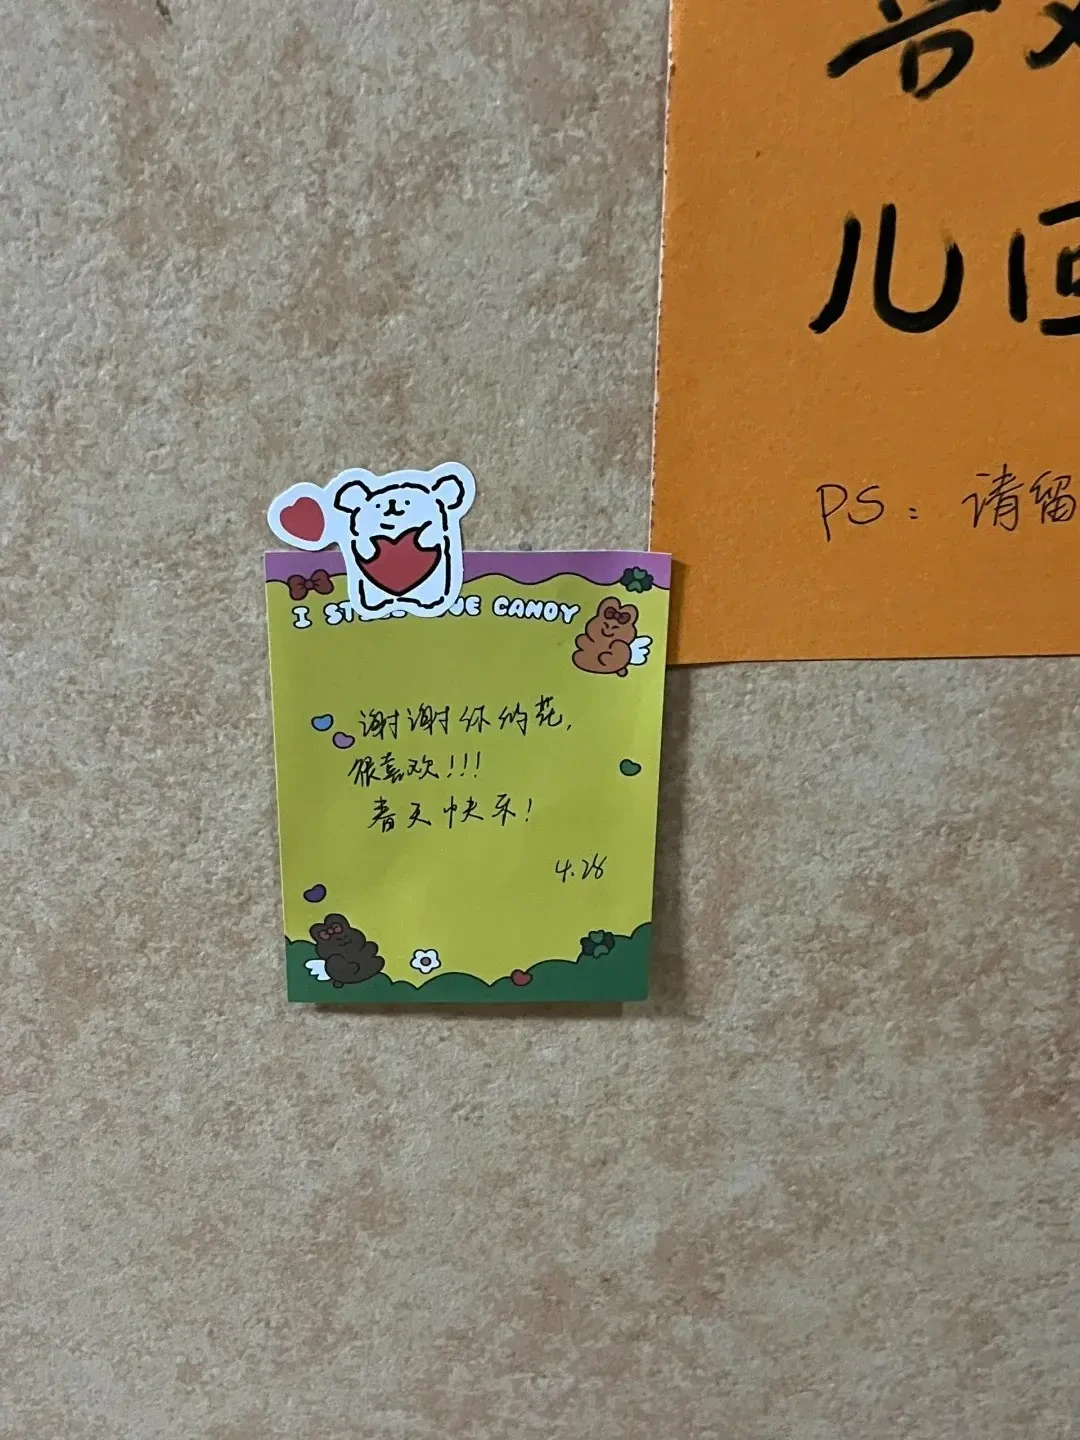 儿
PS：请留
I ST
CANDY
谢谢你的花，
很喜欢!!!
春天快乐!
4.28